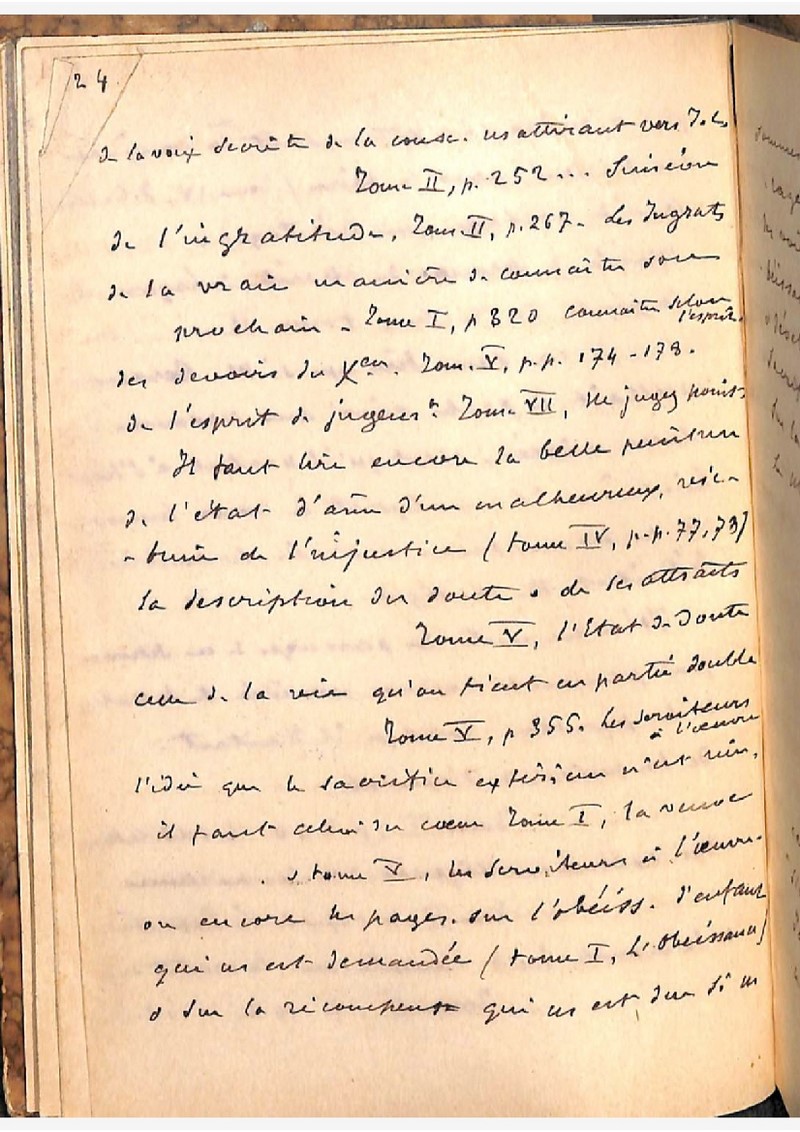 24
de la voix secrète de la consc. ns attirant vers J.
Tome II, p. 252 ... Siméon
de l'ingratitude, Tom. II, p. 267. Les Ingrats
de la vraie manière de connaître son
prochain - Tome I, p 320 connaître selon
l'esprit.
des devoirs du Xen. Tom. V, p.p. 174-178.
de l'esprit de jugemt. Tome VII, Ne jugez point
Il faut lire encore la belle peinture
de l'état d'âme d'un malheureux, vic-
-time de l'injustice (tome IV, p.p. 77, 78)
la description du doute & de ses attraits
Tome V, l'Etat de Doute
celle de la vie qu'on tient en partie double
Tome V, p 355. Les serviteurs
à l'œuvre
l'idée que le sacrifice extérieur n'est rien,
il faut celui du cœur Tome I, la veuve
& tome V, les serviteurs à l'œuvre.
ou encore les pages sur l'obéiss. d'enfant
qui ns est demandée (tome I, L'Obéissance)
& sur la récompense qui ns est due si ns